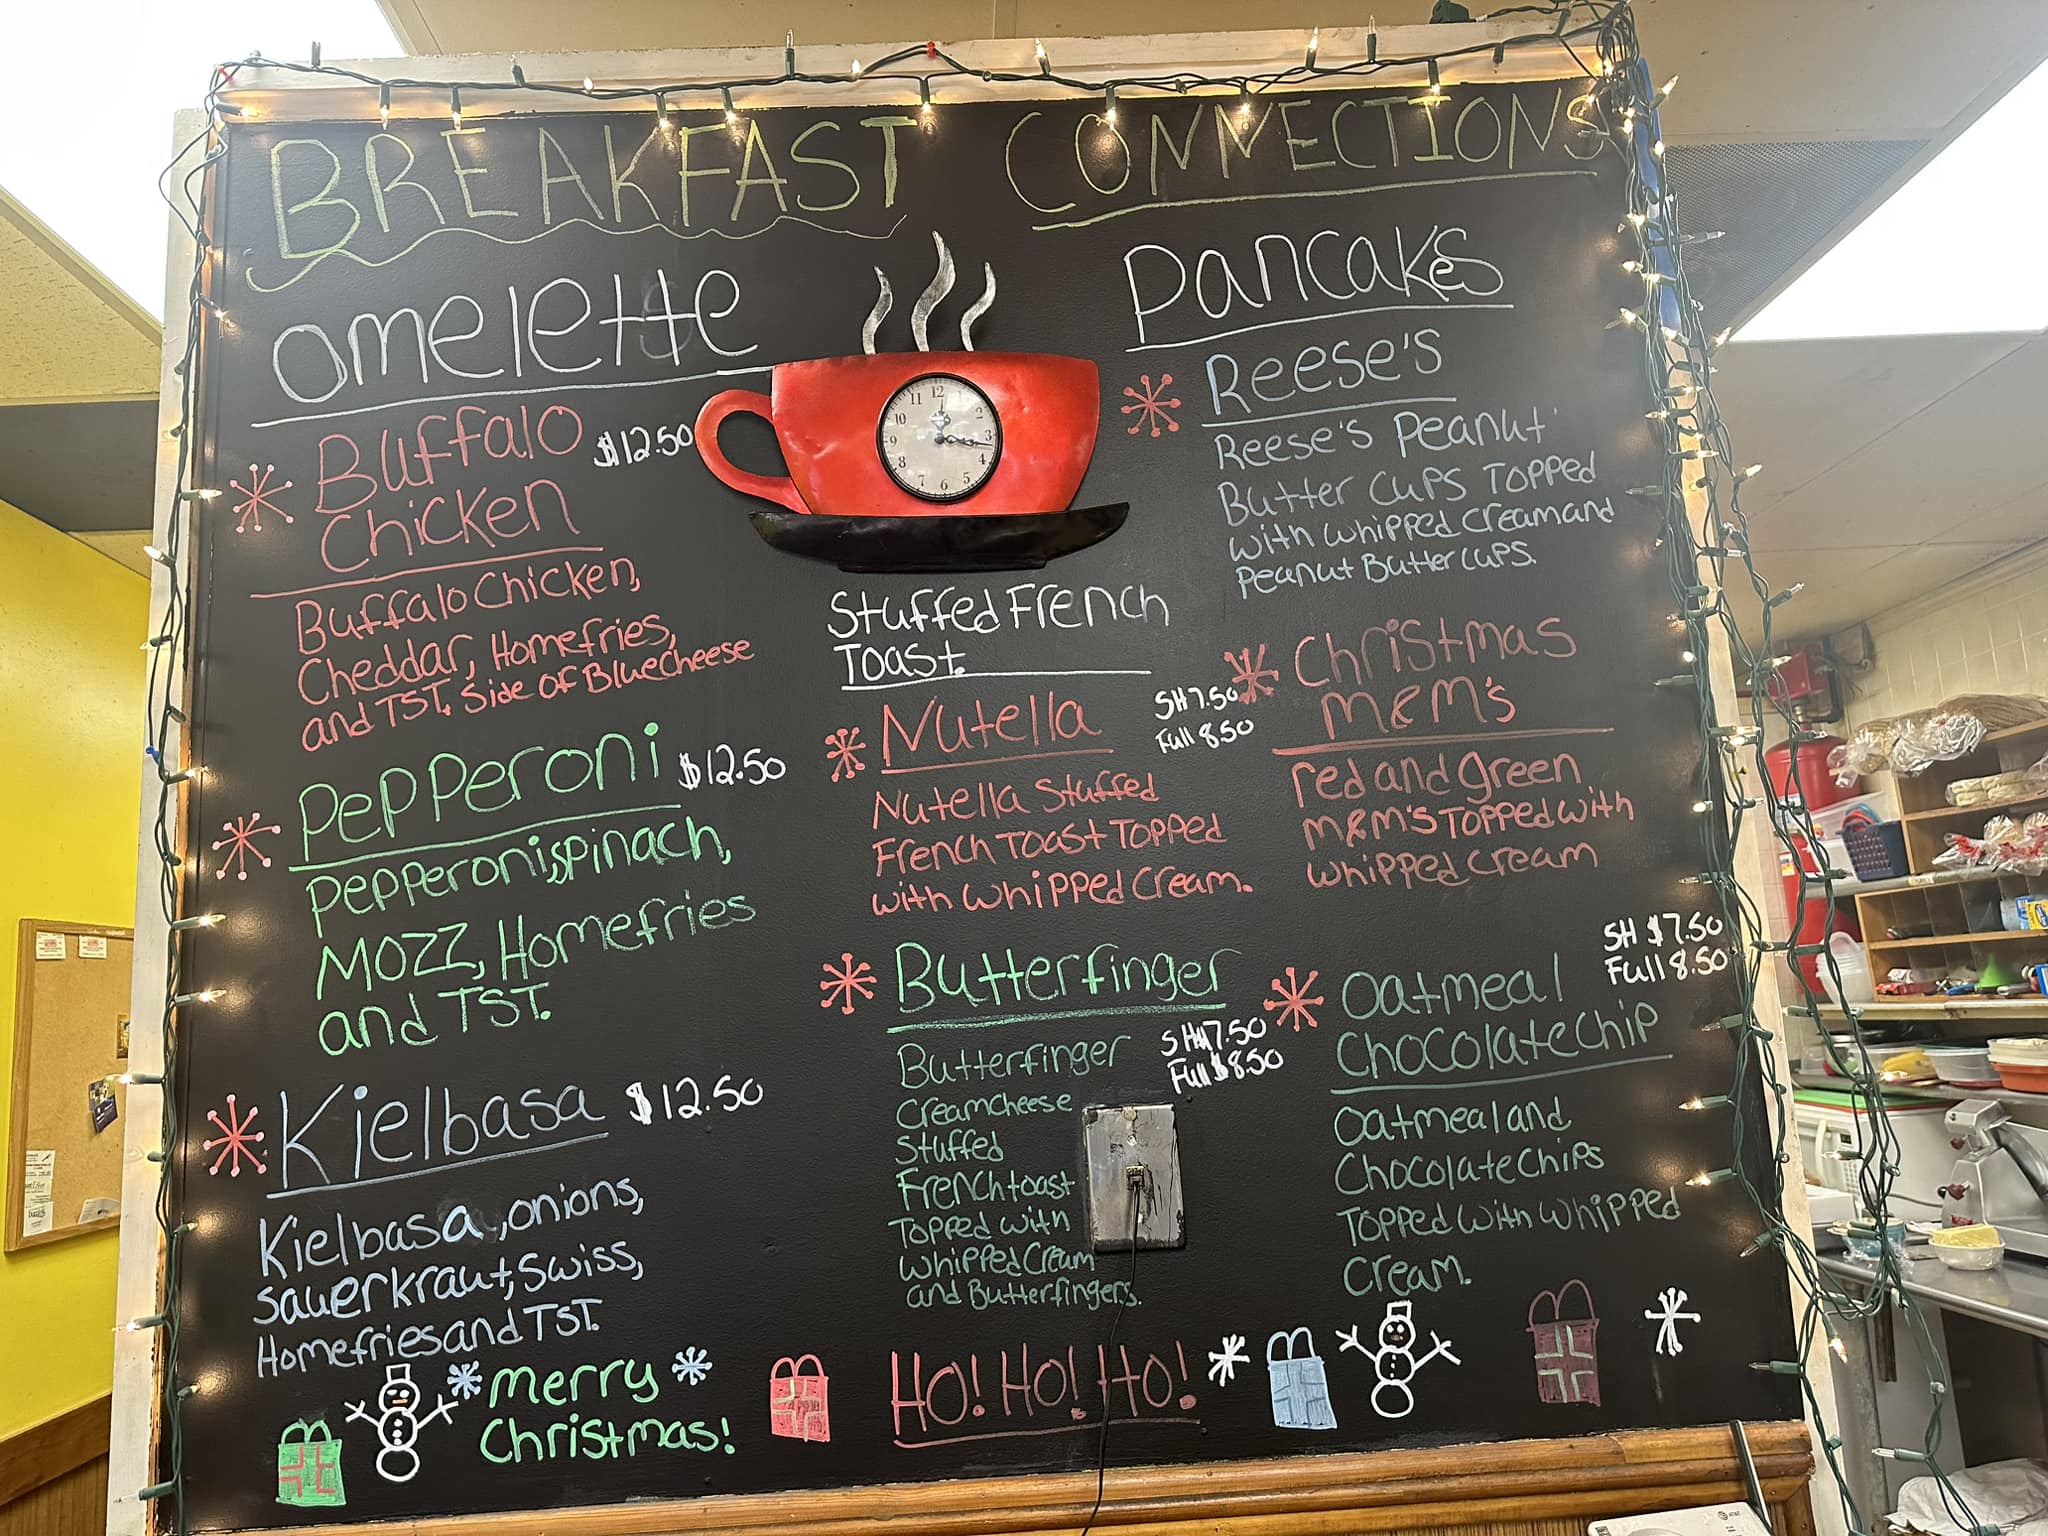 BREAKFAST CONNECTIONS
omelette
Buffalo $12.50
Chicken
Buffalo Chicken,
Cheddar, Homefries,
and TST. Side of BlueCheese
Pepperoni $12.50
Pepperoni, spinach,
MOZZ, Homefries
and TST.
Kielbasa $12.50
Kielbasa, onions,
Sauerkraut, Swiss,
Homefries and TST.
merry
Christmas!
12
11
10
9
8
7
6
5
4
3
2
Stuffed French
Toast.
Nutella SH 7.50
Full 8.50
Nutella Stuffed
French Toast Topped
with whipped cream.
Butterfinger
SH $7.50
Full $8.50
Butterfinger
Creamcheese
Stuffed
French toast
Topped with
whipped Cream
and Butterfingers.
HO! HO! HO!
Pancakes
Reese's
Reese's Peanut
Butter Cups Topped
with whipped cream and
Peanut Butter cups.
Christmas
M&M's
red and green
M&M's Topped with
whipped cream
SH $7.50
Full 8.50
Oatmeal
Chocolate Chip
Oatmeal and
Chocolate Chips
Topped with whipped
Cream.
AT&T